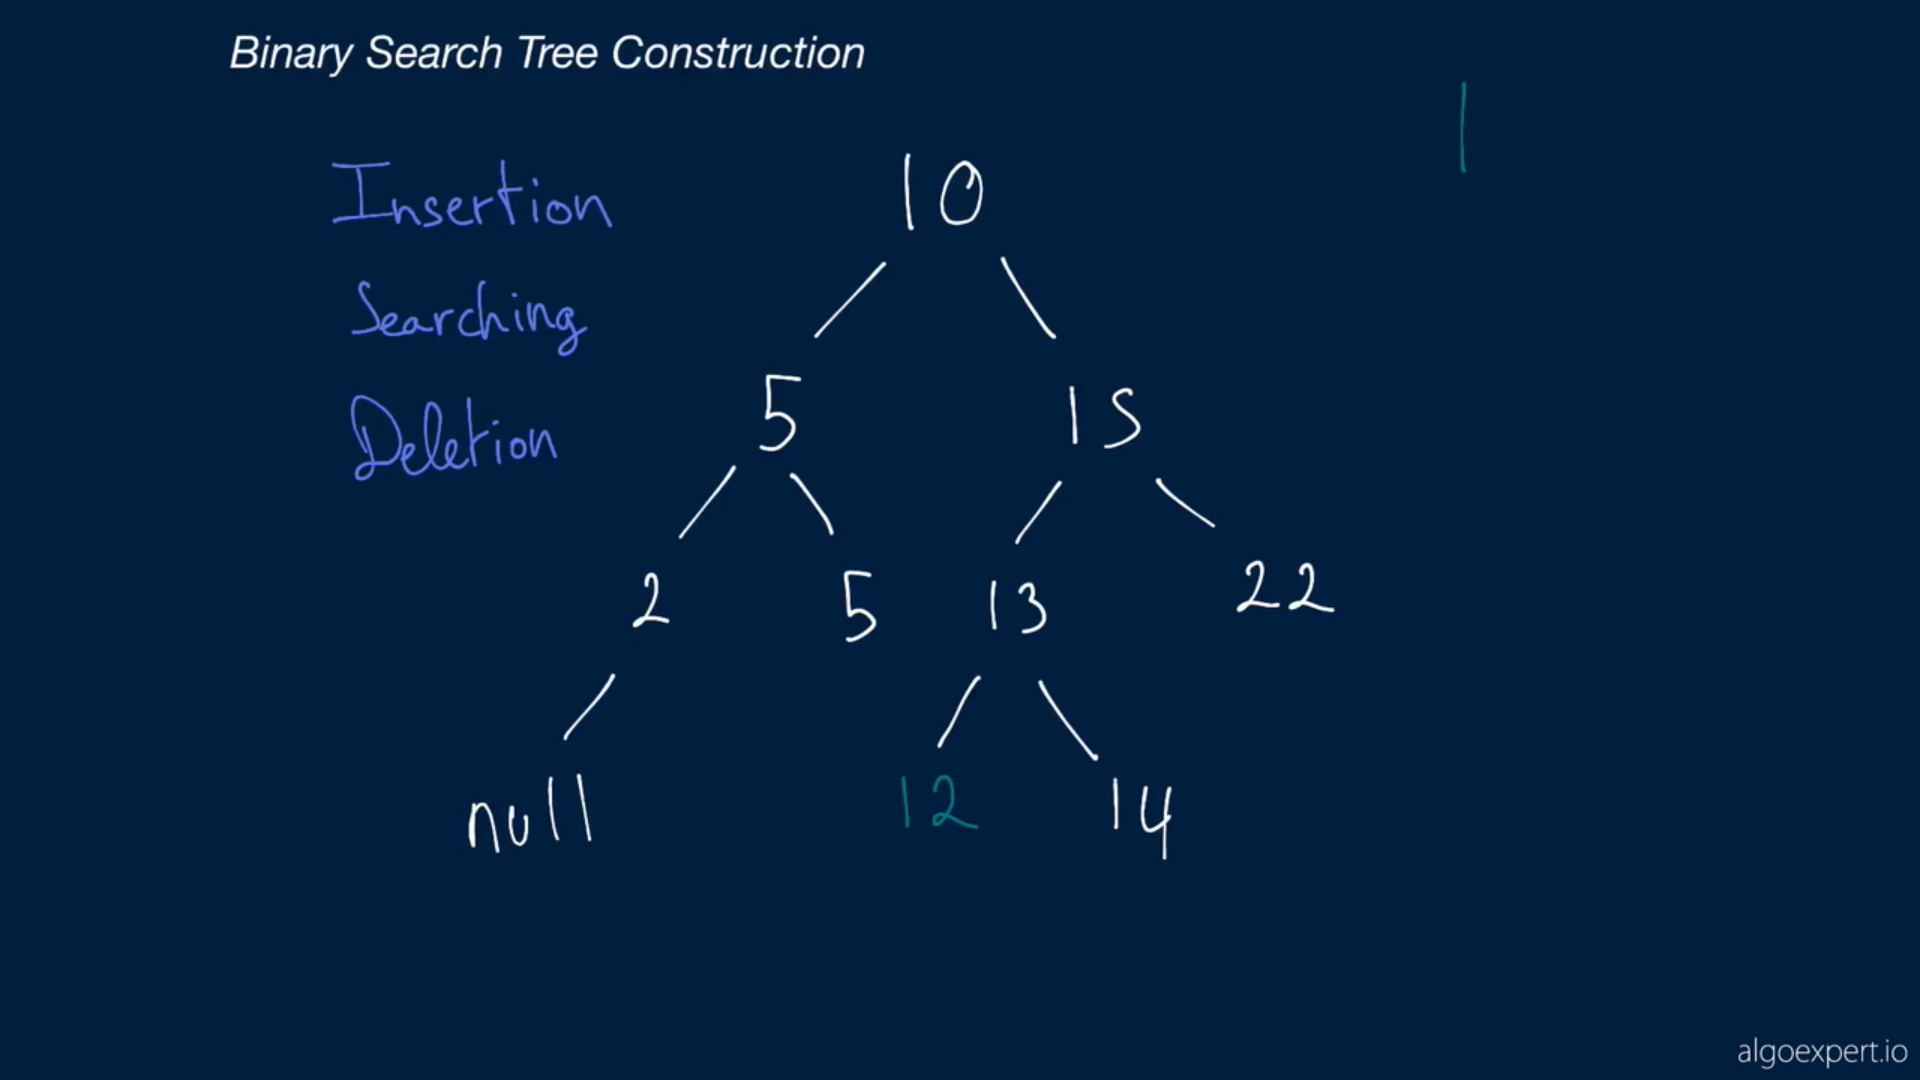 Binary Search Tree Construction
Insertion
Searching
Deletion
10
5 15
2 5 13 22
null 12 14
algoexpert.io